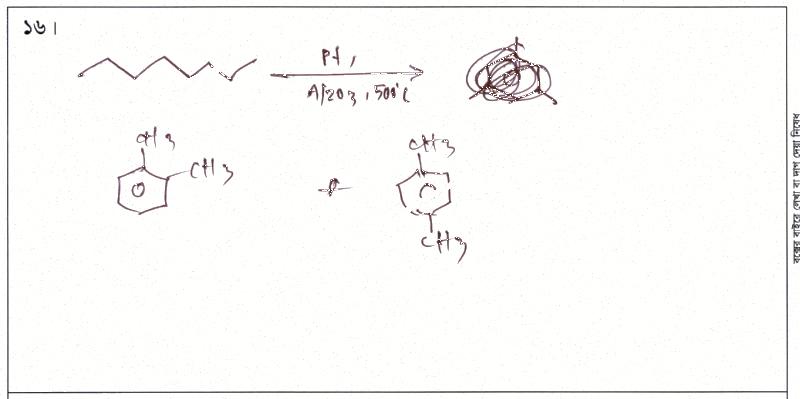 ১৬।
Pt,
Al2O3, 500°C
CH3
CH3
+
CH3
CH3
বক্সের বাইরে লেখা বা দাগ দেয়া নিষেধ